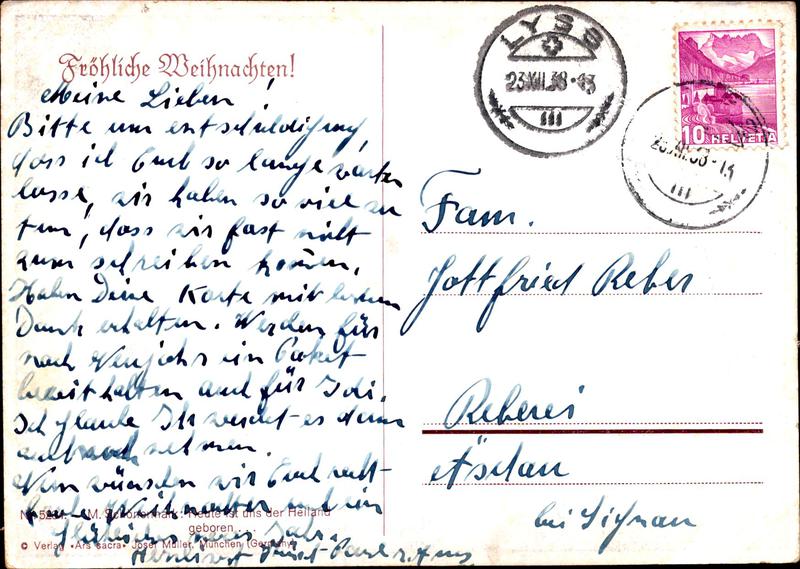 Fröhliche Weihnachten!
Meine Lieben!
Bitte um entschuldigung,
dass ich Euch so lange warten
lasse, wir haben so viel zu
tun, dass wir fast nicht
zum schreiben kommen.
Haben Deine Karte mit bestem
Dank erhalten. Werden für
nach Neujahr ein Paket
bereit halten und für Idi.
Ich glaube Ihr werdet es dann
auch nehmen.
Nun wünschen wir Euch recht
frohe Weihnachten und ein
glückliches neues Jahr.
M. Spötl: Heute ist uns der Heiland
geboren . . .
© Verlag "Ars sacra" Josef Müller, München (Germany)
LYSS
23.XII.38-13
III
10 HELVETIA
23.XII.38-13
III
Fam.
Gottfried Reber
Reberei
Äschau
bei Signau